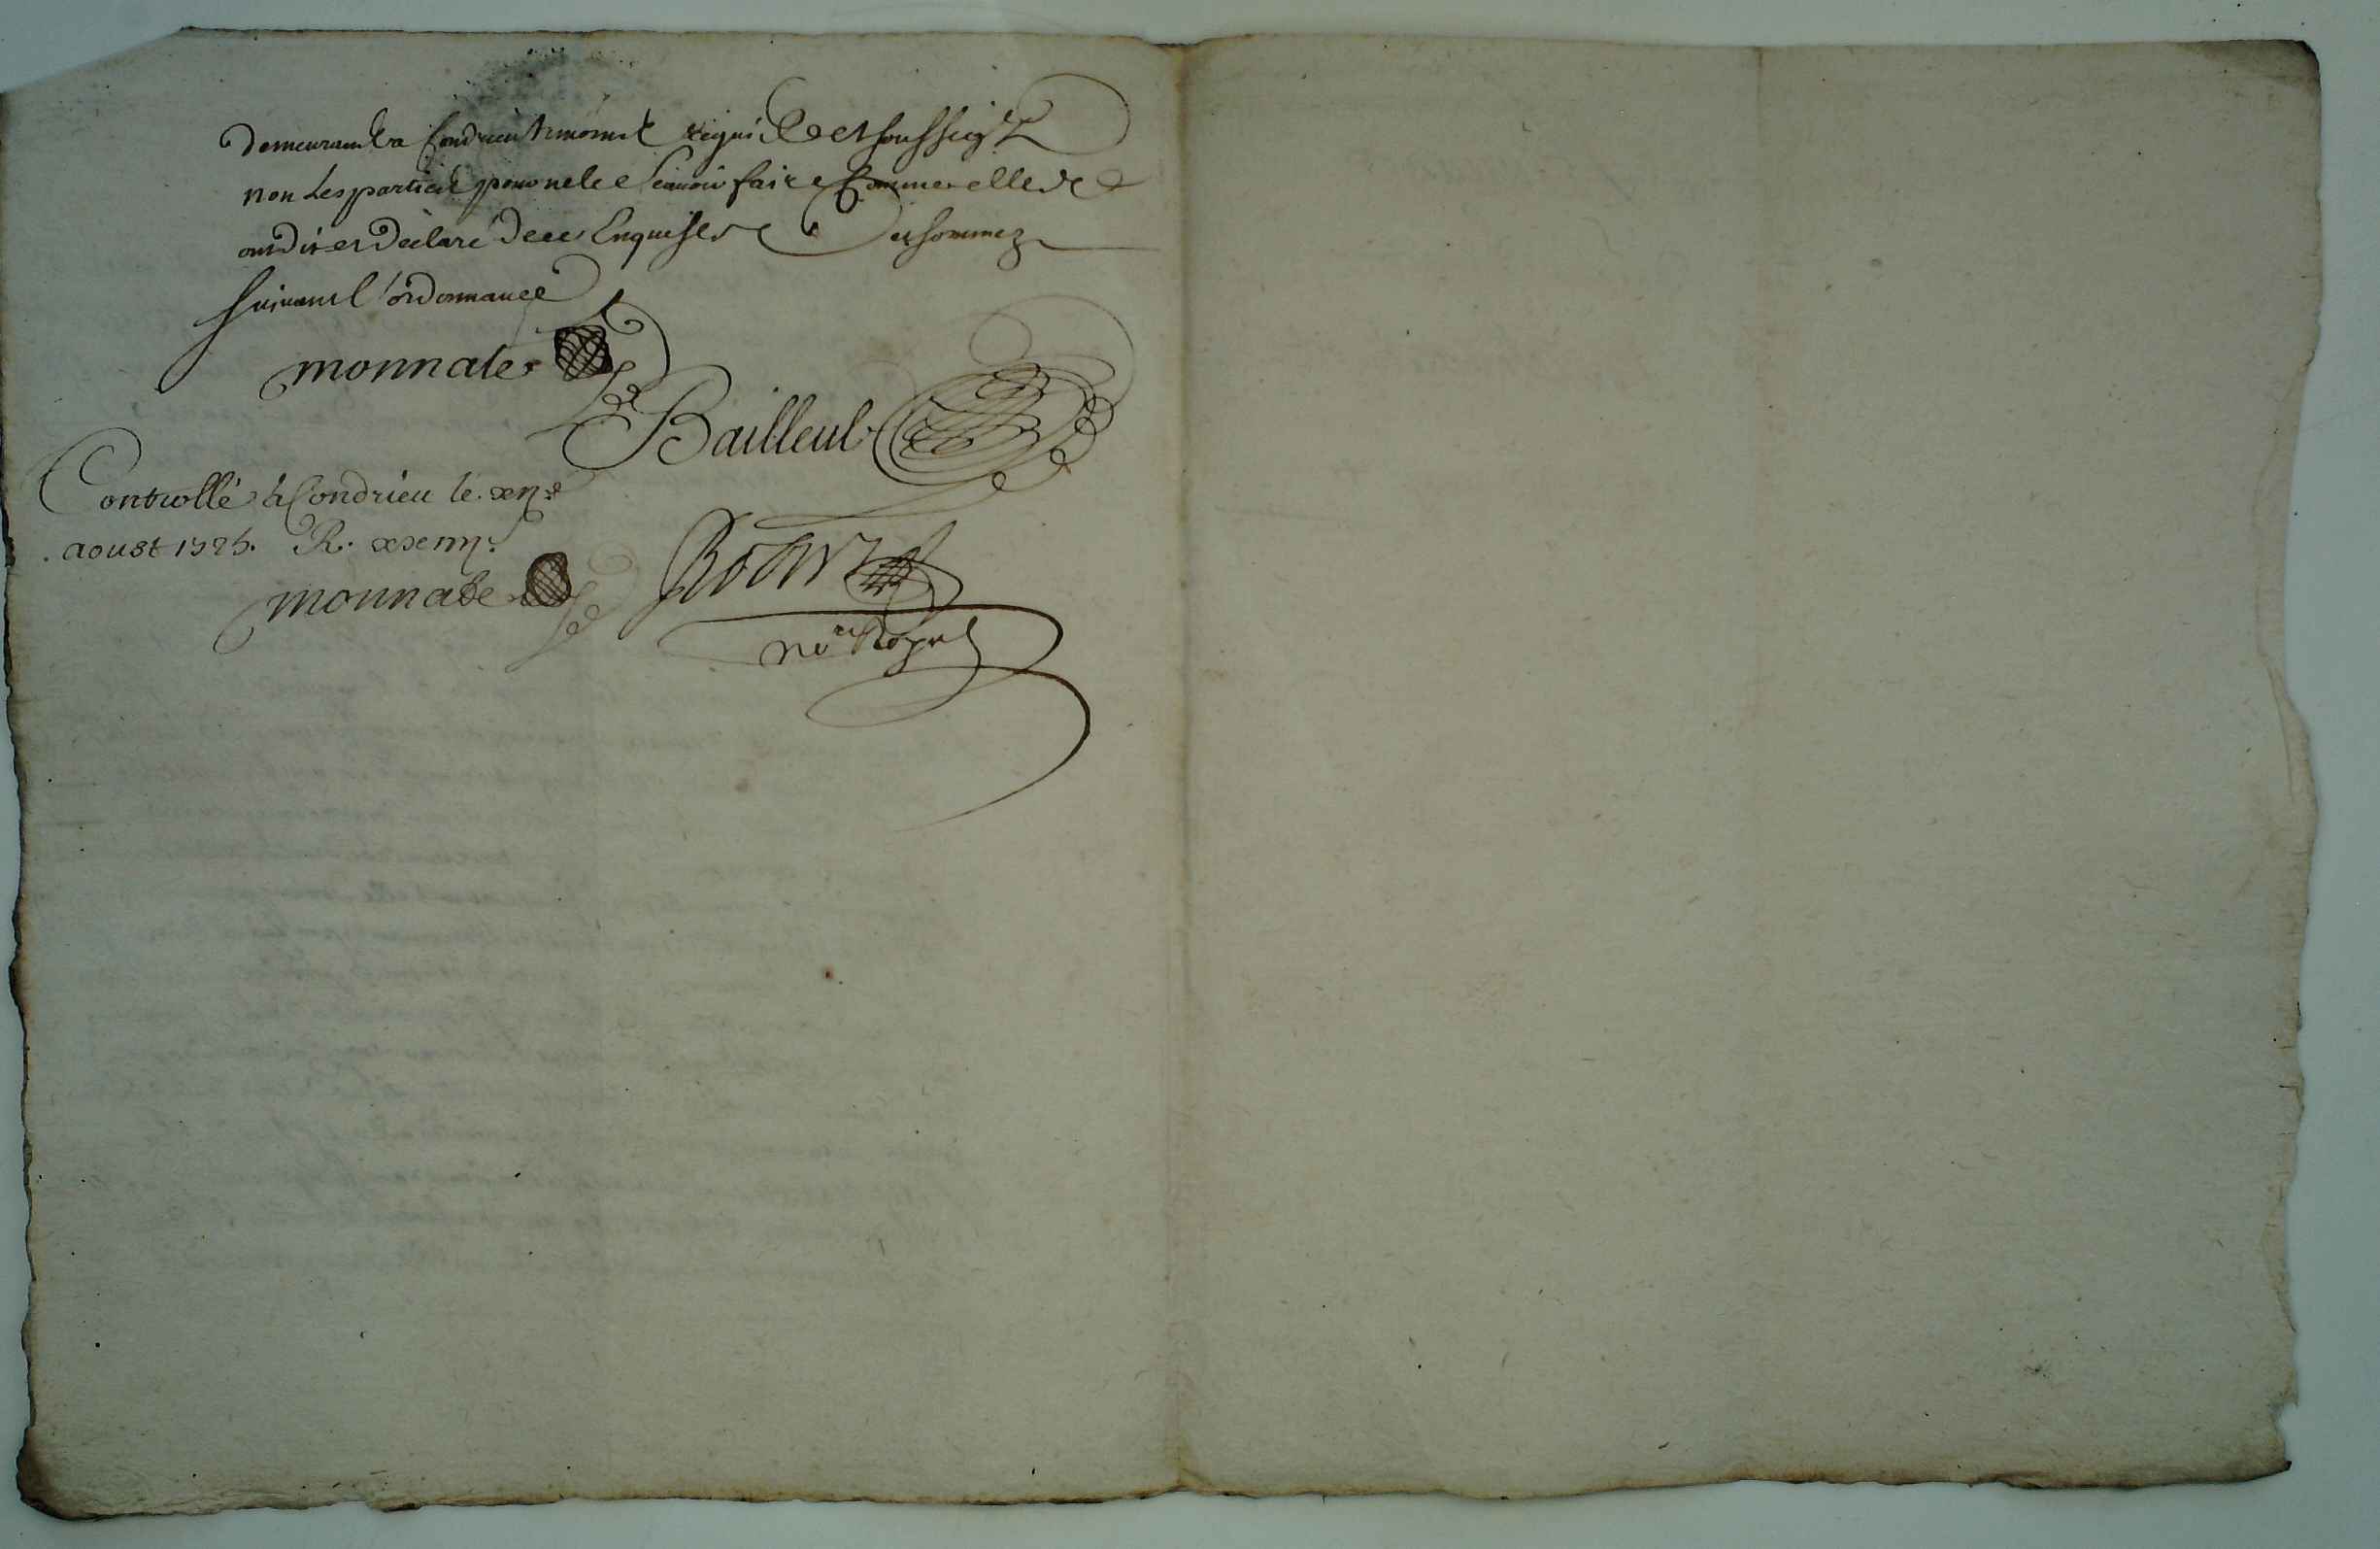 demeurant a Condrieu temoins requis et soussignez
non les parties pour ne le scauoir faire comme elles
ont dit et declaré de ce enquises et sommez
suiuant l'ordonnance
monnate
Bailleul
Controllé à Condrieu le
aoust 1725. R.
monnate
no.re Royal